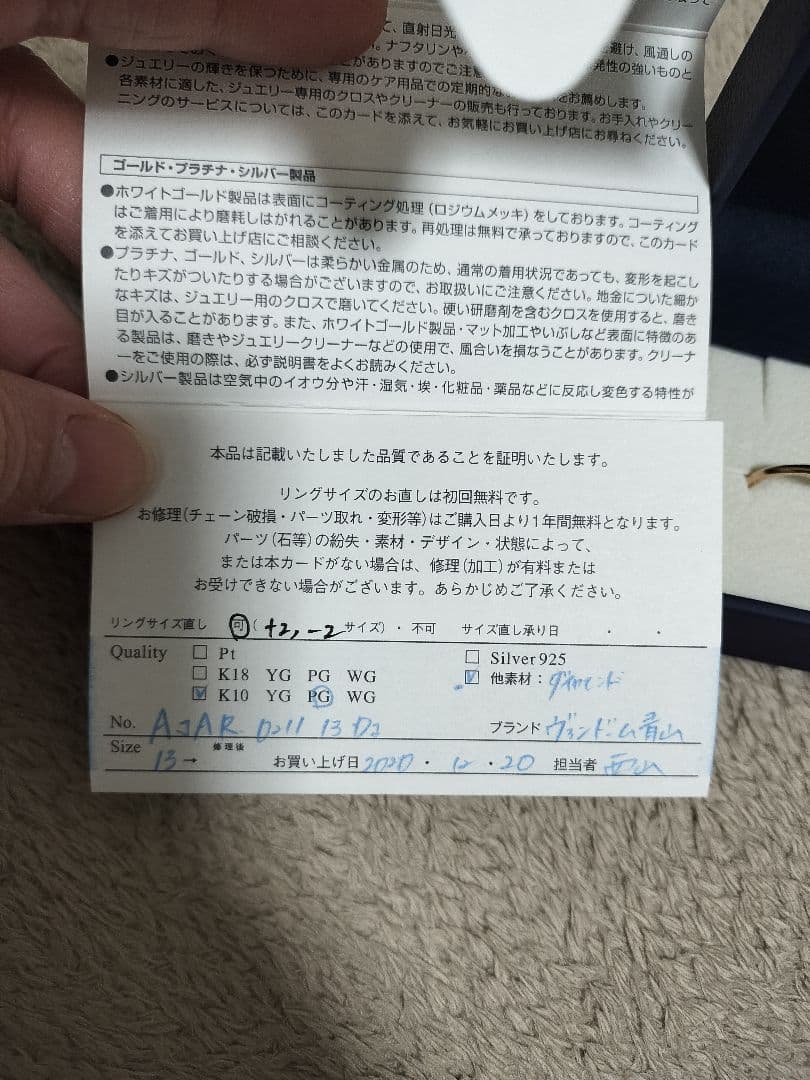 て、直射日光
避け、風通しの
ナフタリンや
発性の強いものと
がありますのでご注意
●ジュエリーの輝きを保つために、専用のケア用品での定期的な
をお薦めします。
各素材に適した、ジュエリー専用のクロスやクリーナーの販売も行っております。お手入れやクリー
ニングのサービスについては、このカードを添えて、お気軽にお買い上げ店にお尋ねください。
ゴールド・プラチナ・シルバー製品
●ホワイトゴールド製品は表面にコーティング処理(ロジウムメッキ)をしております。コーティング
はご着用により磨耗しはがれることがあります。再処理は無料で承っておりますので、このカード
を添えてお買い上げ店にご相談ください。
●プラチナ、ゴールド、シルバーは柔らかい金属のため、通常の着用状況であっても、変形を起こし
たりキズがついたりする場合がございますので、お取扱いにご注意ください。地金についた細か
なキズは、ジュエリー用のクロスで磨いてください。硬い研磨剤を含むクロスを使用すると、磨き
目が入ることがあります。また、ホワイトゴールド製品・マット加工やいぶしなど表面に特徴のあ
る製品は、磨きやジュエリークリーナーなどの使用で、風合いを損なうことがあります。クリーナ
ーをご使用の際は、必ず説明書をよくお読みください。
●シルバー製品は空気中のイオウ分や汗・湿気・埃・化粧品・薬品などに反応し変色する特性が
本品は記載いたしました品質であることを証明いたします。
リングサイズのお直しは初回無料です。
お修理(チェーン破損・パーツ取れ・変形等)はご購入日より1年間無料となります。
パーツ(石等)の紛失・素材・デザイン・状態によって、
または本カードがない場合は、修理(加工)が有料または
お受けできない場合がございます。あらかじめご了承ください。
リングサイズ直し 可(+2,-2サイズ)・不可 サイズ直し承り日 ・ ・
Quality □ Pt □ Silver 925
□ K18 YG PG WG ☑ 他素材:ダイヤモンド
☑ K10 YG PG WG
No. AJAR 0211 13 DI ブランド ヴァンドーム青山
Size 13→ 修理後 お買い上げ日 2020・12・20 担当者 西山